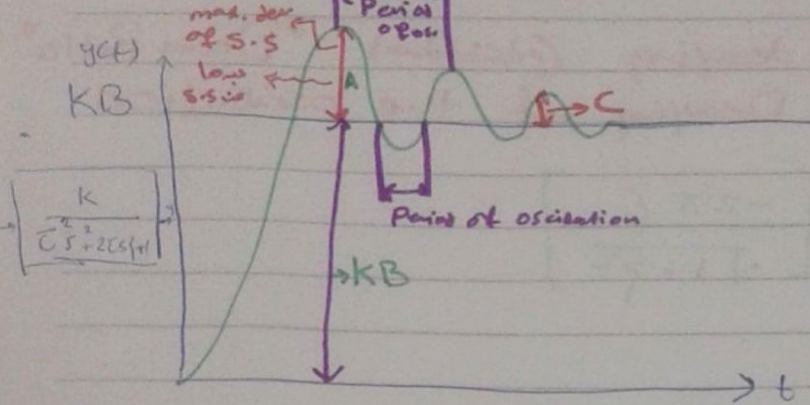 max. dev
of S.S
Period
y(t)
A
KB
C
K
τ²s²+2τsζ+1
Period of oscilation
KB
t